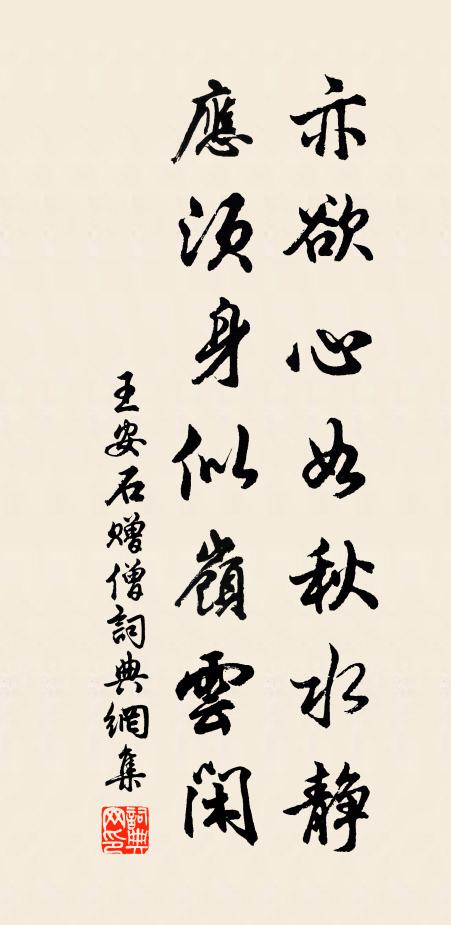 亦欲心如秋水静
應須身似嶺雲閑
王安石贈僧詞典網集
詞典
网印